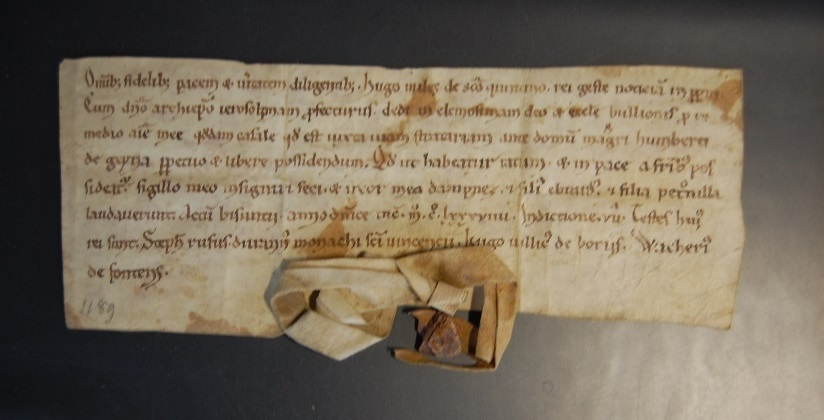 Om̅ib; fidelib; pacem & u̅itatem diligentib; hugo miles de sc̅o quintino. rei geste noticia̅
Cum dn̅o archiep̅o ierosolymam ꝓfecturus. dedi in elemosinam deo & eccle bullionis. ꝓ re
medio aı̅e mee q̅ddam casale q̅d est iuxta uiam ante domu̅ mag̅ri humberti
de gyana ꝑpetuo & libere possidendum. Q̅d ut habeatur ratum. & in pace a frib̅ pos
sideat̅. sigillo meo insigniri feci. & uxor mea dampnez. & filia pet̅nilla
laudauerunt. Actu̅ bisuntii. anno dn̅ice inc̅. m̅. c̅. lxxxviiii. Indictione. vii. Testes hui̅
rei sunt. Steph̅ rufus. monachi sc̅i uincencii. hugo uillic̅ de boriis. Wacheri̅
de fontenis.
1189